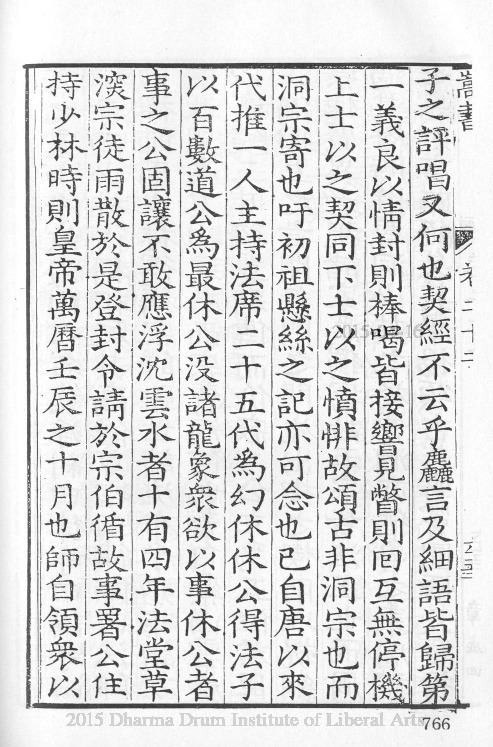 嵩書
卷二十二
子之評唱又何也契經不云乎麤言及細語皆歸第
一義良以情封則棒喝皆接響見瞥則回互無停機
上士以之契同下士以之憤悱故頌古非洞宗也而
洞宗寄也吁初祖懸絲之記亦可念也已自唐以來
代推一人主持法席二十五代為幻休休公得法子
以百數道公為最休公没諸龍象衆欲以事休公者
事之公固讓不敢應浮沈雲水者十有四年法堂草
深宗徒雨散於是登封令請於宗伯循故事署公住
持少林時則皇帝萬曆壬辰之十月也師自領衆以
2015 Dharma Drum Institute of Liberal Arts
766